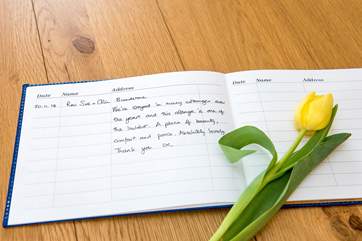 Date Name Address Date Name Address
20.11.16 Rev Sue + Chris
We've stayed in many cottages over
the years and this cottage is one of
the loveliest. A place of beauty,
comfort and peace. Absolutely lovely.
Thank you xx